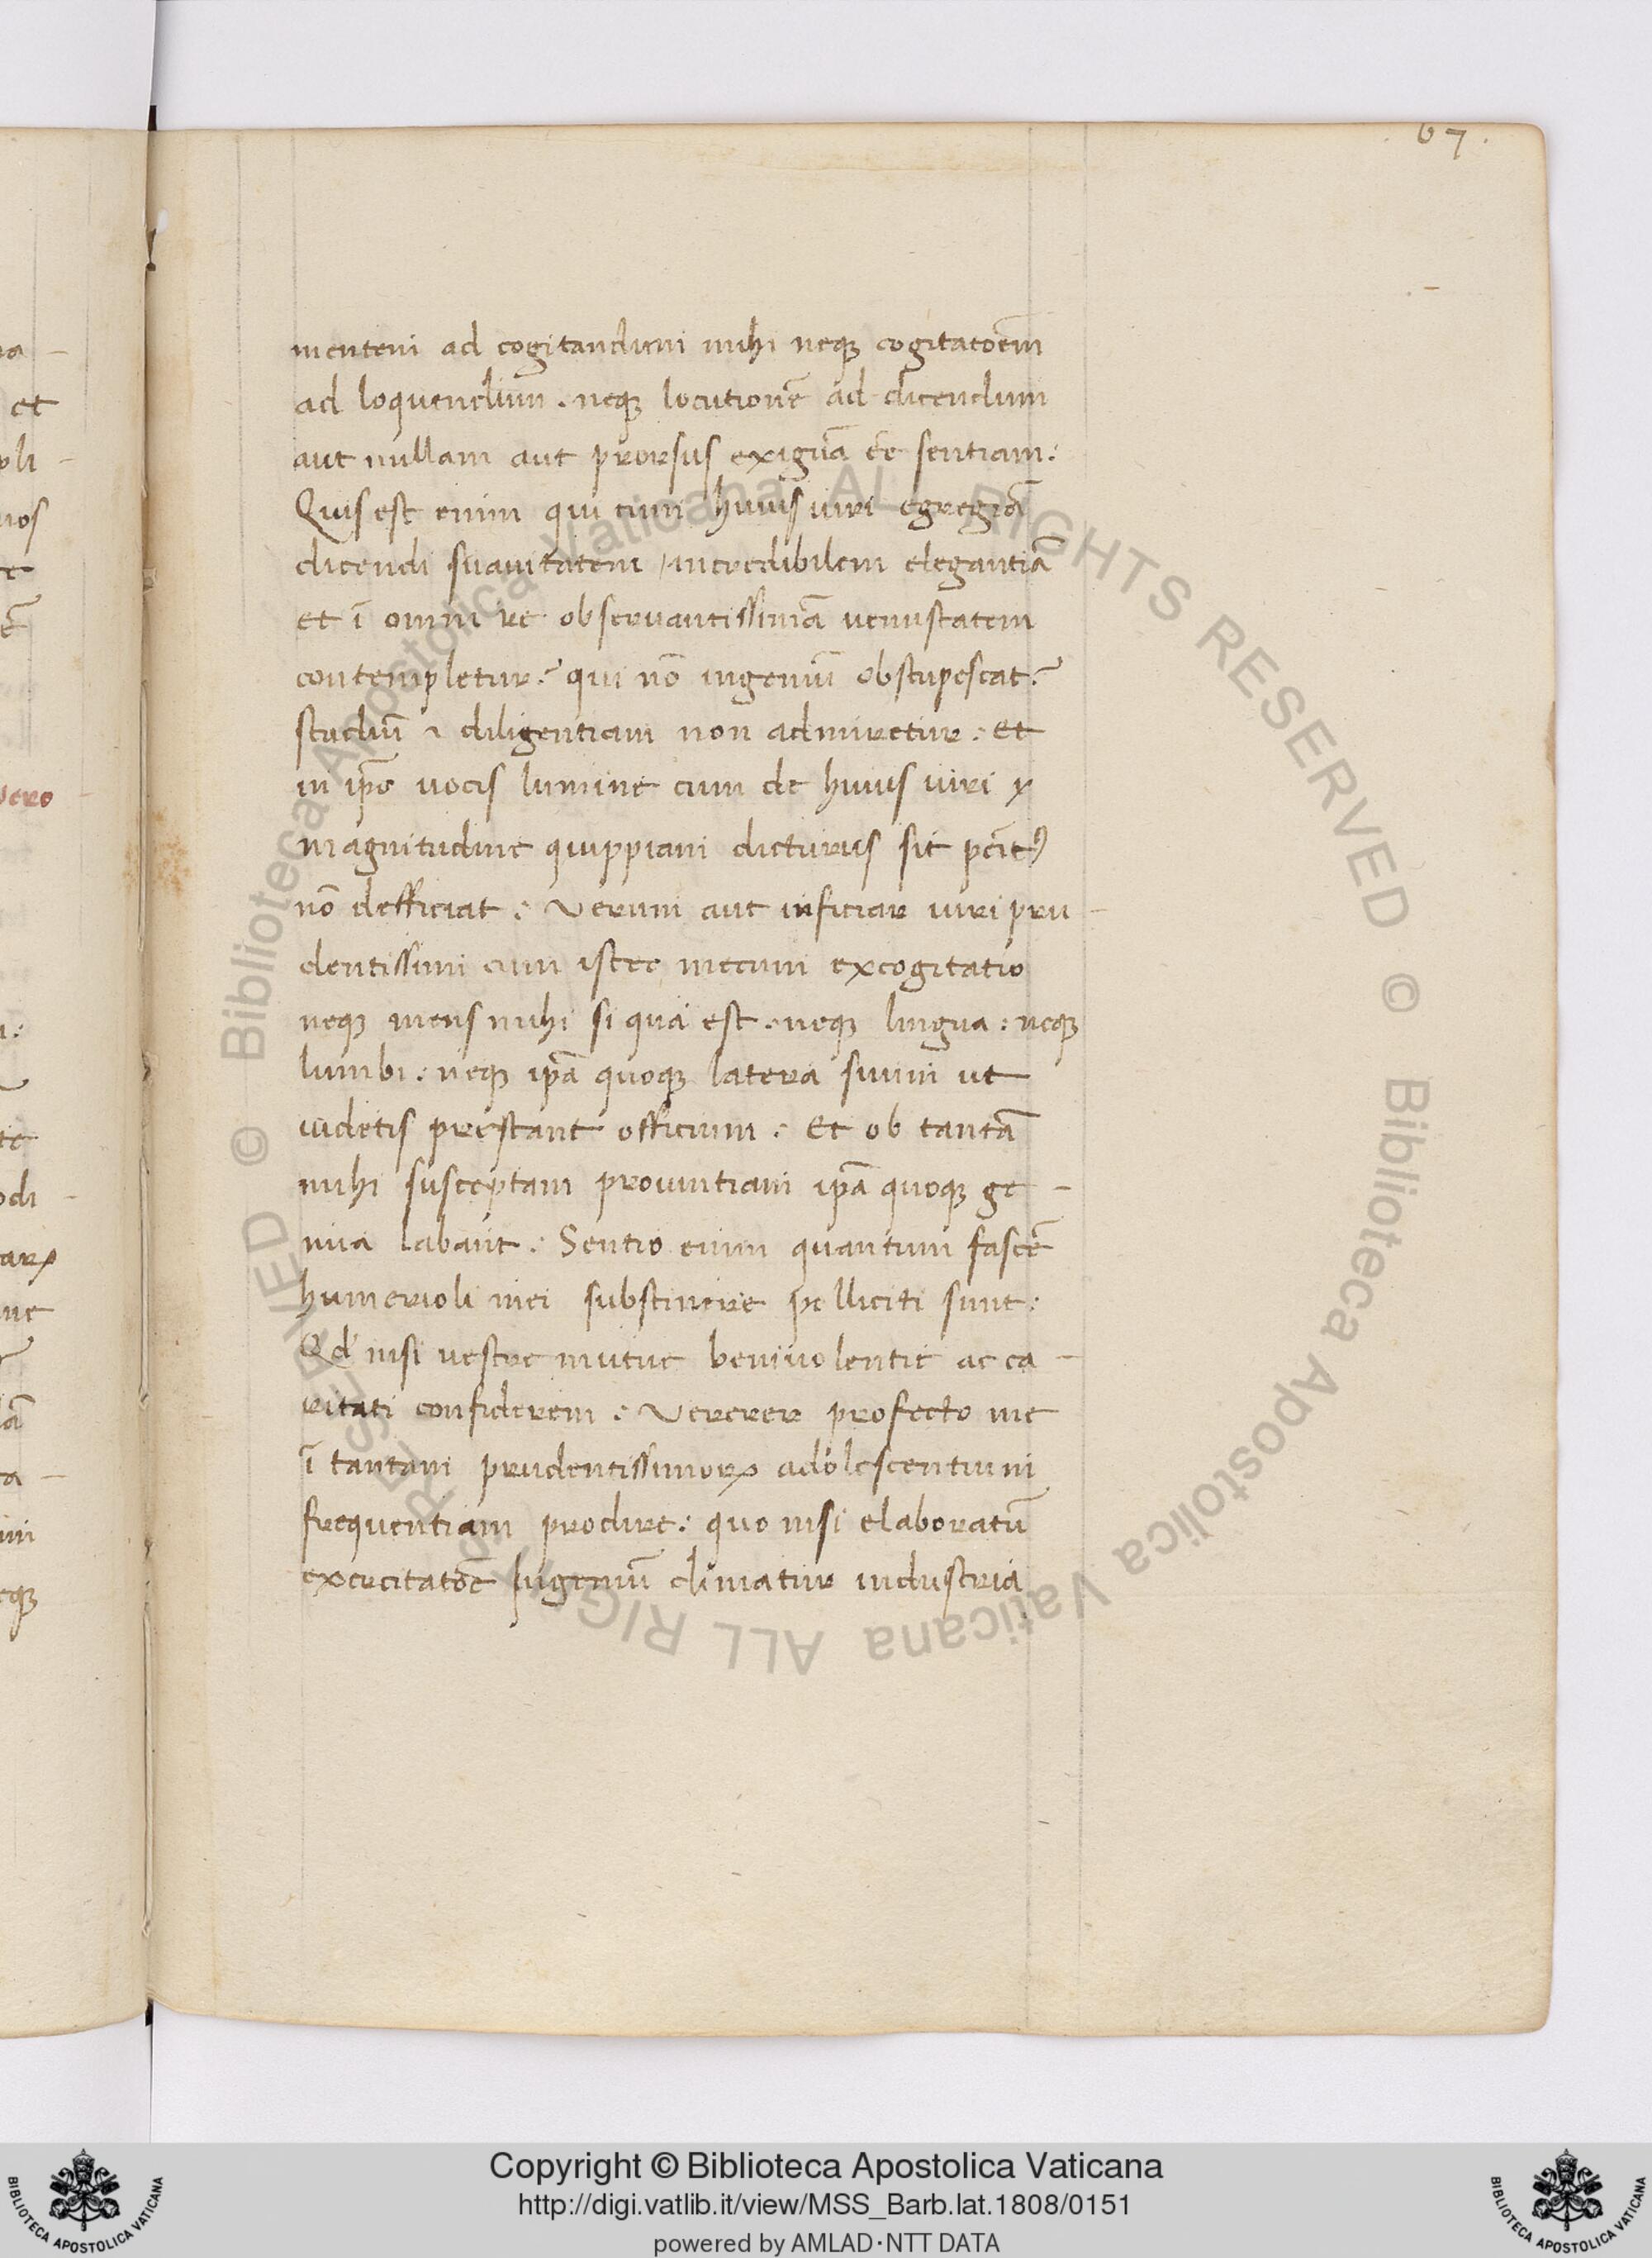 67.
mentem ad cogitandum mihi neqꝫ cogitatoēm
ad loquendum. neqꝫ locutionē ad dicendum
aut nullam aut prorsus exiguā eē sentiam:
Quis est enim qui cum huius uiri egregiā
dicendi suauitatem / incredibilem elegantiā
et ī omni re obseruantissimā uenustatem
contempletur? qui nō ingeniū obstupescat?
studiū ⁊ diligentiam non admiretur: Et
in ip̄o uocis lumine cum de huius uiri
magnitudine quippiam dicturus sit
nō defficiat: Verum aut inficiar uiri pru-
dentissimi cum istec mecum excogitatio
neqꝫ mens mihi si qua est. neqꝫ lingua: neqꝫ
lumbi: neqꝫ ip̄a quoqꝫ latera suum ut
uidetis prestant officium: Et ob tantā
mihi susceptam prouintiam ip̄a quoqꝫ ge-
nua labant: Sentio enim quantum fascē
humerioli mei substinere polliciti sunt:
Qd' nisi uestre mutue beniuolentie ac ca-
ritati confiderem: Vererer profecto me
ī tantam prudentissimoꝝ adolescentium
frequentiam prodire: quo nisi elaboratū
exercitatōe Ingeniū climatur industria
et
uero
Copyright © Biblioteca Apostolica Vaticana
http://digi.vatlib.it/view/MSS_Barb.lat.1808/0151
powered by AMLAD·NTT DATA
BIBLIOTECA APOSTOLICA VATICANA
BIBLIOTECA APOSTOLICA VATICANA
© Biblioteca Apostolica Vaticana ALL RIGHTS RESERVED © Biblioteca Apostolica Vaticana ALL RIGHTS RESERVED